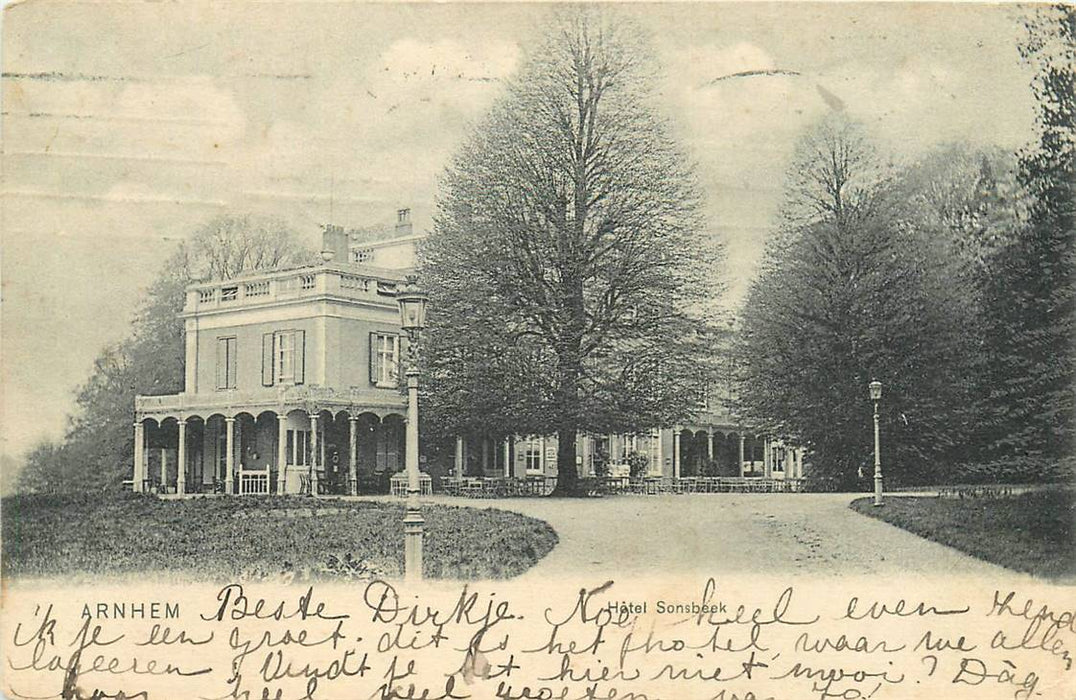 ARNHEM Hôtel Sonsbeek
Beste Dirkje. Nog heel even zend
ik je een groet. dit is het hotel, waar we allen
logeeren! Vindt je het hier niet mooi? Dàg,
hoor heel veel groeten van To